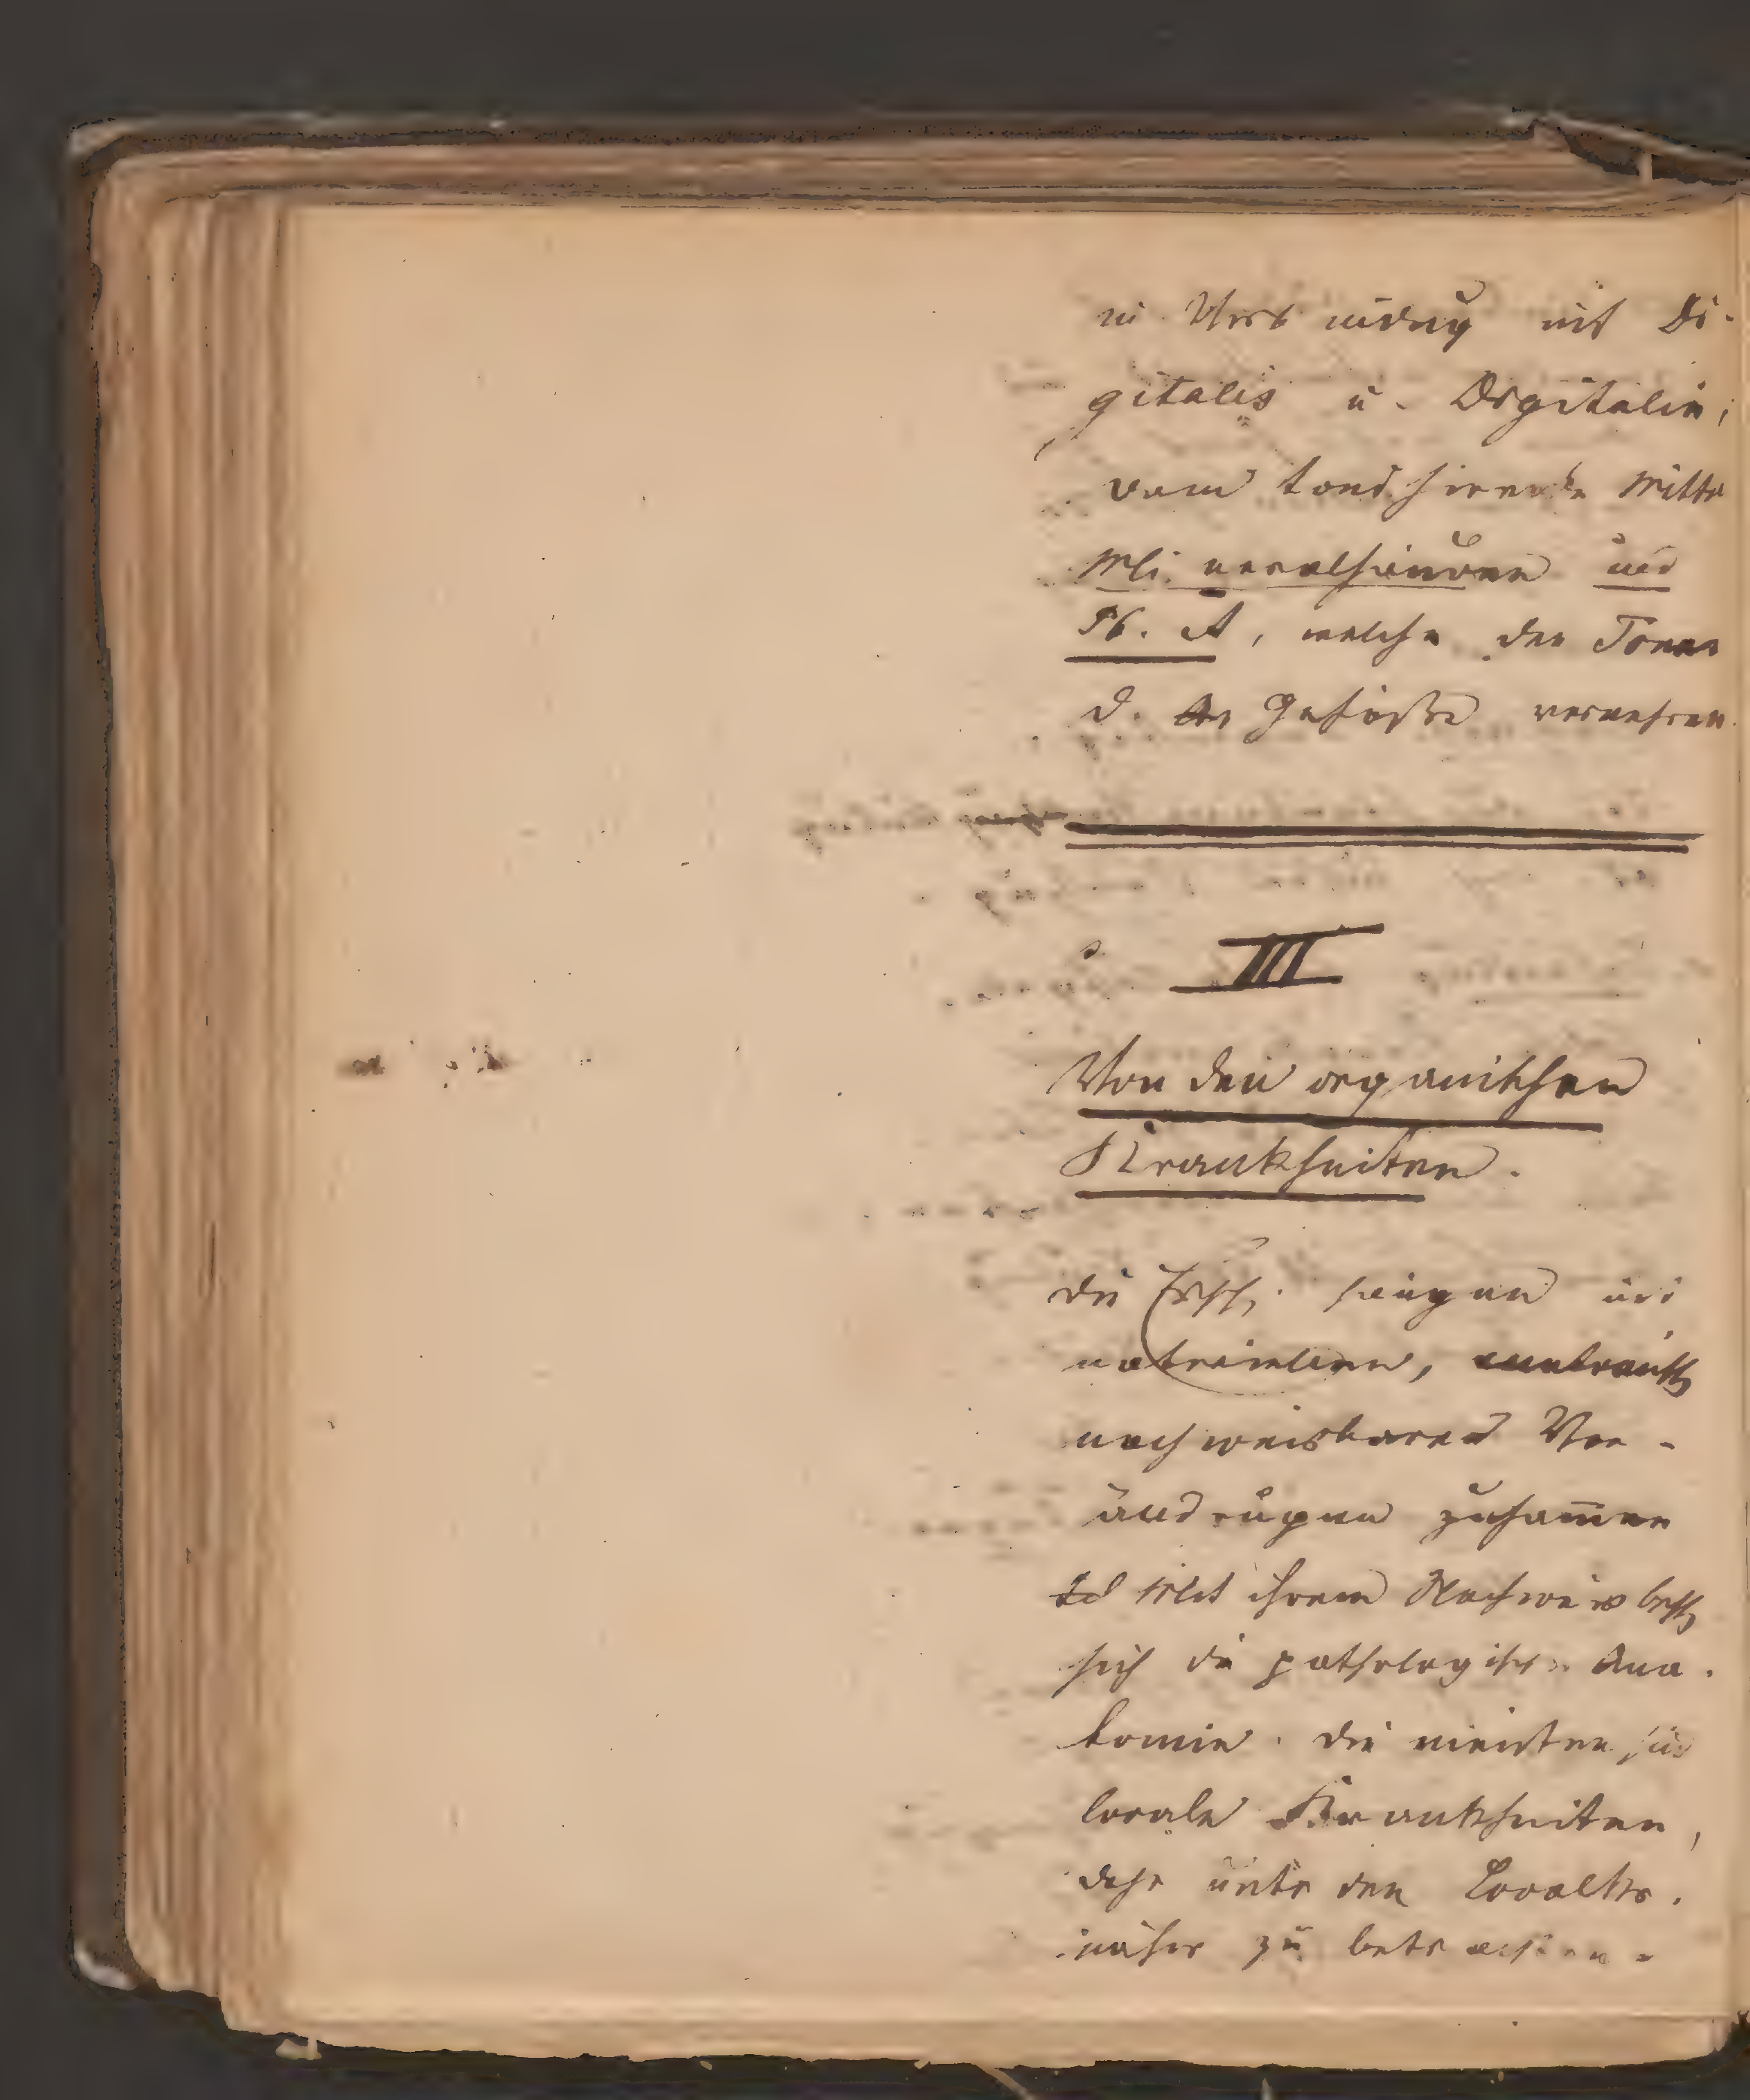 in Verbindung mit Di-
gitalis u. Digitalin,
dann tonisirende Mittel
Mineralsäuren und
Pb. A, welche den Tonus
d. Gefäße vermehren.
III
Von den organischen
Krankheiten.
die Ersch. hängen mit
materiellen,
nachweisbaren Ver-
änderungen zusammen
Mit ihrem Nachweis besch
sich die pathologische Ana-
tomie. Die meisten sind
locale Krankheiten,
daher unter den
näher zu betrachten.